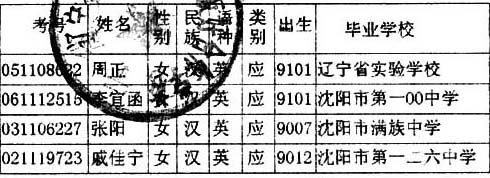 考号 姓名 性别 民族 语种 类别 出生 毕业学校
周正 女 汉 英 应 9101 辽宁省实验学校
061112515 李宜函 女 汉 英 应 9101 沈阳市第一00中学
031106227 张阳 女 汉 英 应 9007 沈阳市满族中学
021119723 戚佳宁 女 汉 英 应 9012 沈阳市第一二六中学